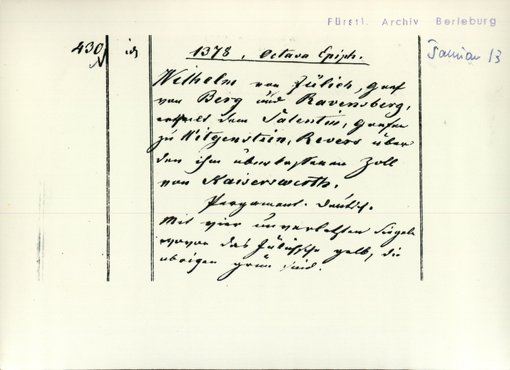 Fürstl. Archiv Berleburg
430
id
1378, Octava Epiph.
Januar 13
Wilhelm von Jülich, Graf
von Berg und Ravensberg,
ertheilt dem Salentin, Grafen
zu Witgenstein, Revers über
den ihm überlassenen Zoll
von Kaiserswerth.
Pergament. Deutsch.
Mit vier unverletzten Siegeln
wovon das Jülichsche gelb, die
übrigen grün sind.